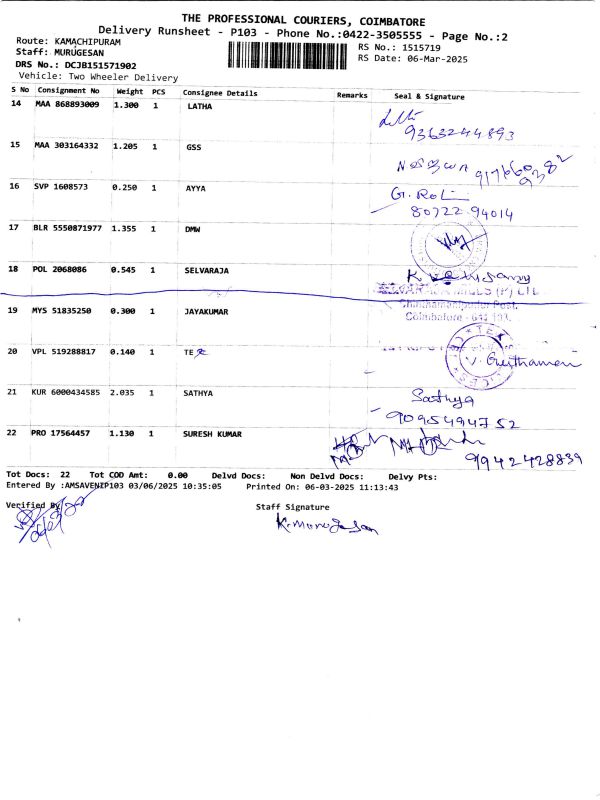 THE PROFESSIONAL COURIERS, COIMBATORE
Delivery Runsheet - P103 - Phone No.:0422-3505555 - Page No.:2
Route: KAMACHIPURAM
RS No.: 1515719
Staff: MURUGESAN
RS Date: 06-Mar-2025
DRS No.: DCJB151571902
Vehicle: Two Wheeler Delivery
S No Consignment No Weight PCS Consignee Details Remarks Seal & Signature
14 MAA 868893009 1.300 1 LATHA
9363244893
15 MAA 303164332 1.205 1 GSS
16 SVP 1608573 0.250 1 AYYA
80722 94014
17 BLR 5550871977 1.355 1 DMW
18 POL 2068086 0.545 1 SELVARAJA
MILLS (P) LTD
19 MYS 51835250 0.300 1 JAYAKUMAR
Coimbatore - 641 103.
20 VPL 519288817 0.140 1 TE
21 KUR 6000434585 2.035 1 SATHYA Sathya
9095494752
22 PRO 17564457 1.130 1 SURESH KUMAR
9942428839
Tot Docs: 22 Tot COD Amt: 0.00 Delvd Docs: Non Delvd Docs: Delvy Pts:
Entered By :AMSAVENIP103 03/06/2025 10:35:05 Printed On: 06-03-2025 11:13:43
Verified By
Staff Signature
K. Murugesan